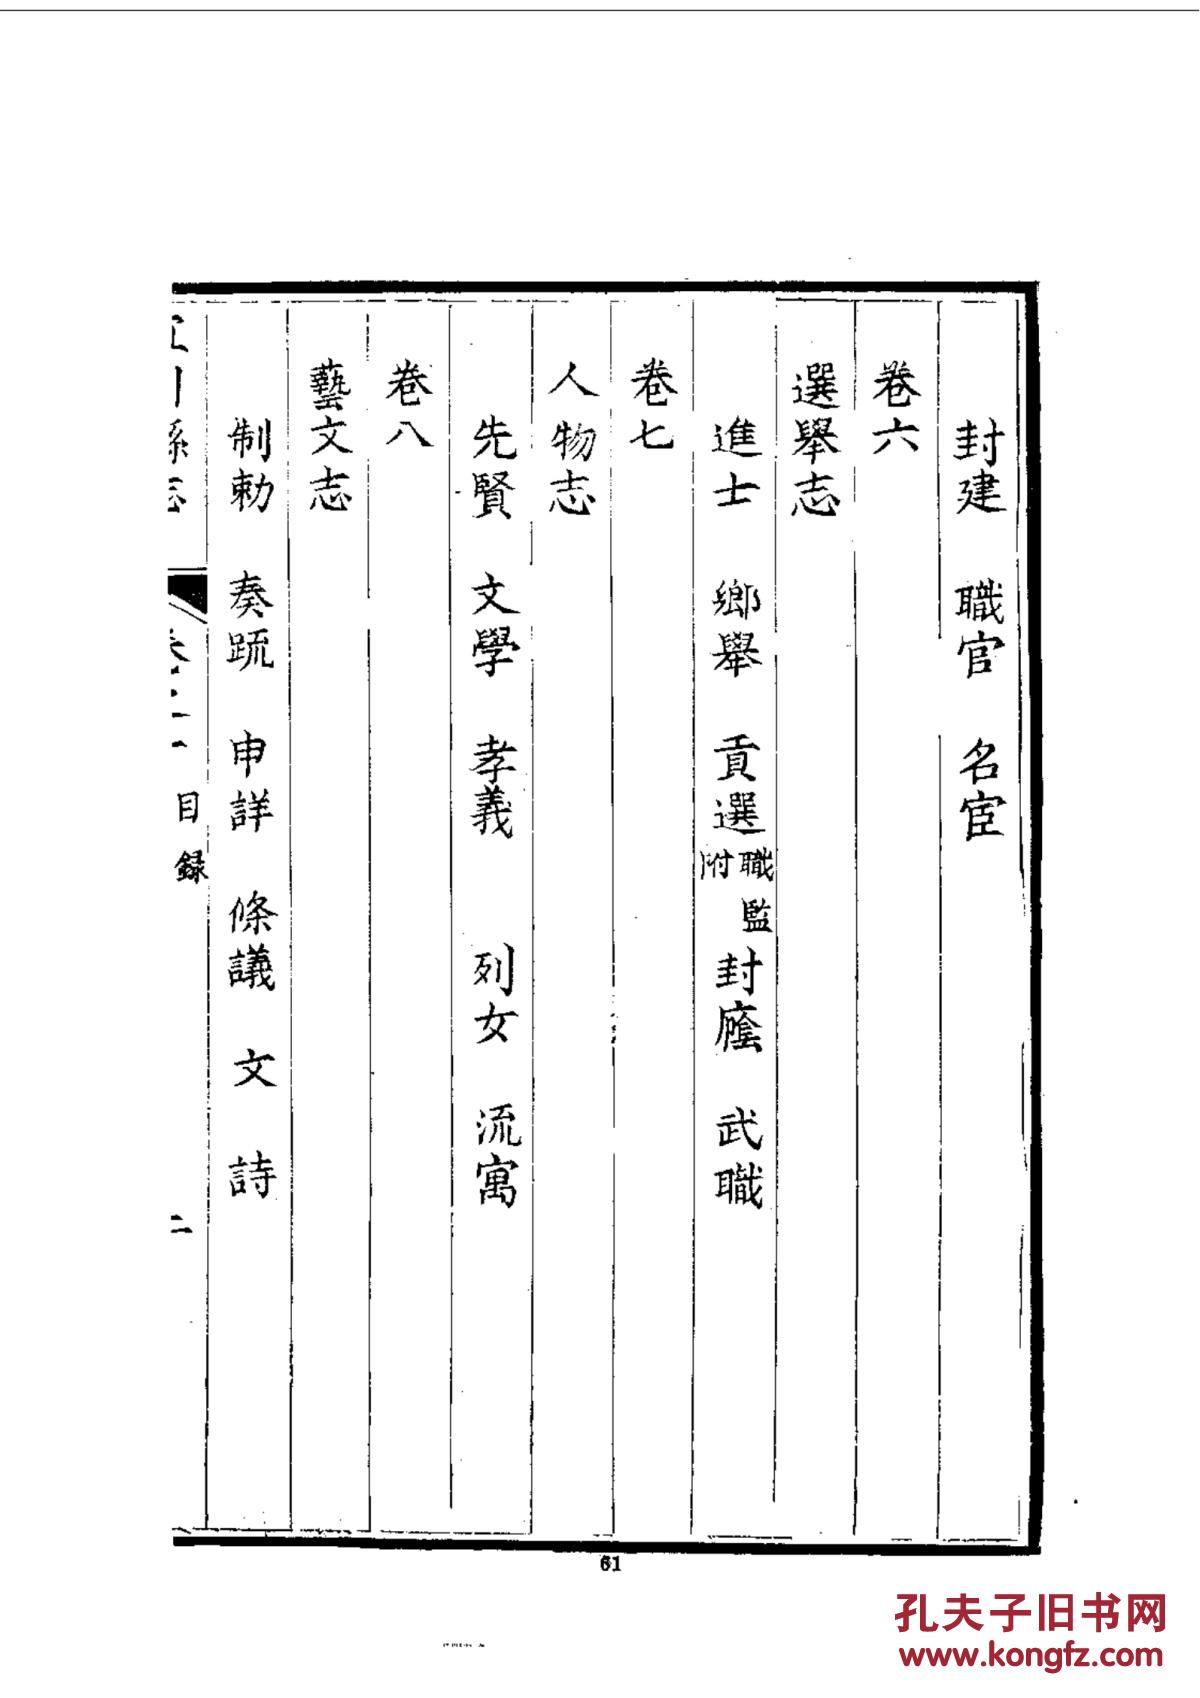 封建　職官　名宦
卷六
選舉志
進士　鄉舉　貢選職監附　封廕　武職
卷七
人物志
先賢　文學　孝義　列女　流寓
卷八
藝文志
制勅　奏疏　申詳　條議　文　詩
川縣志　目録　二
61
孔夫子旧书网
www.kongfz.com